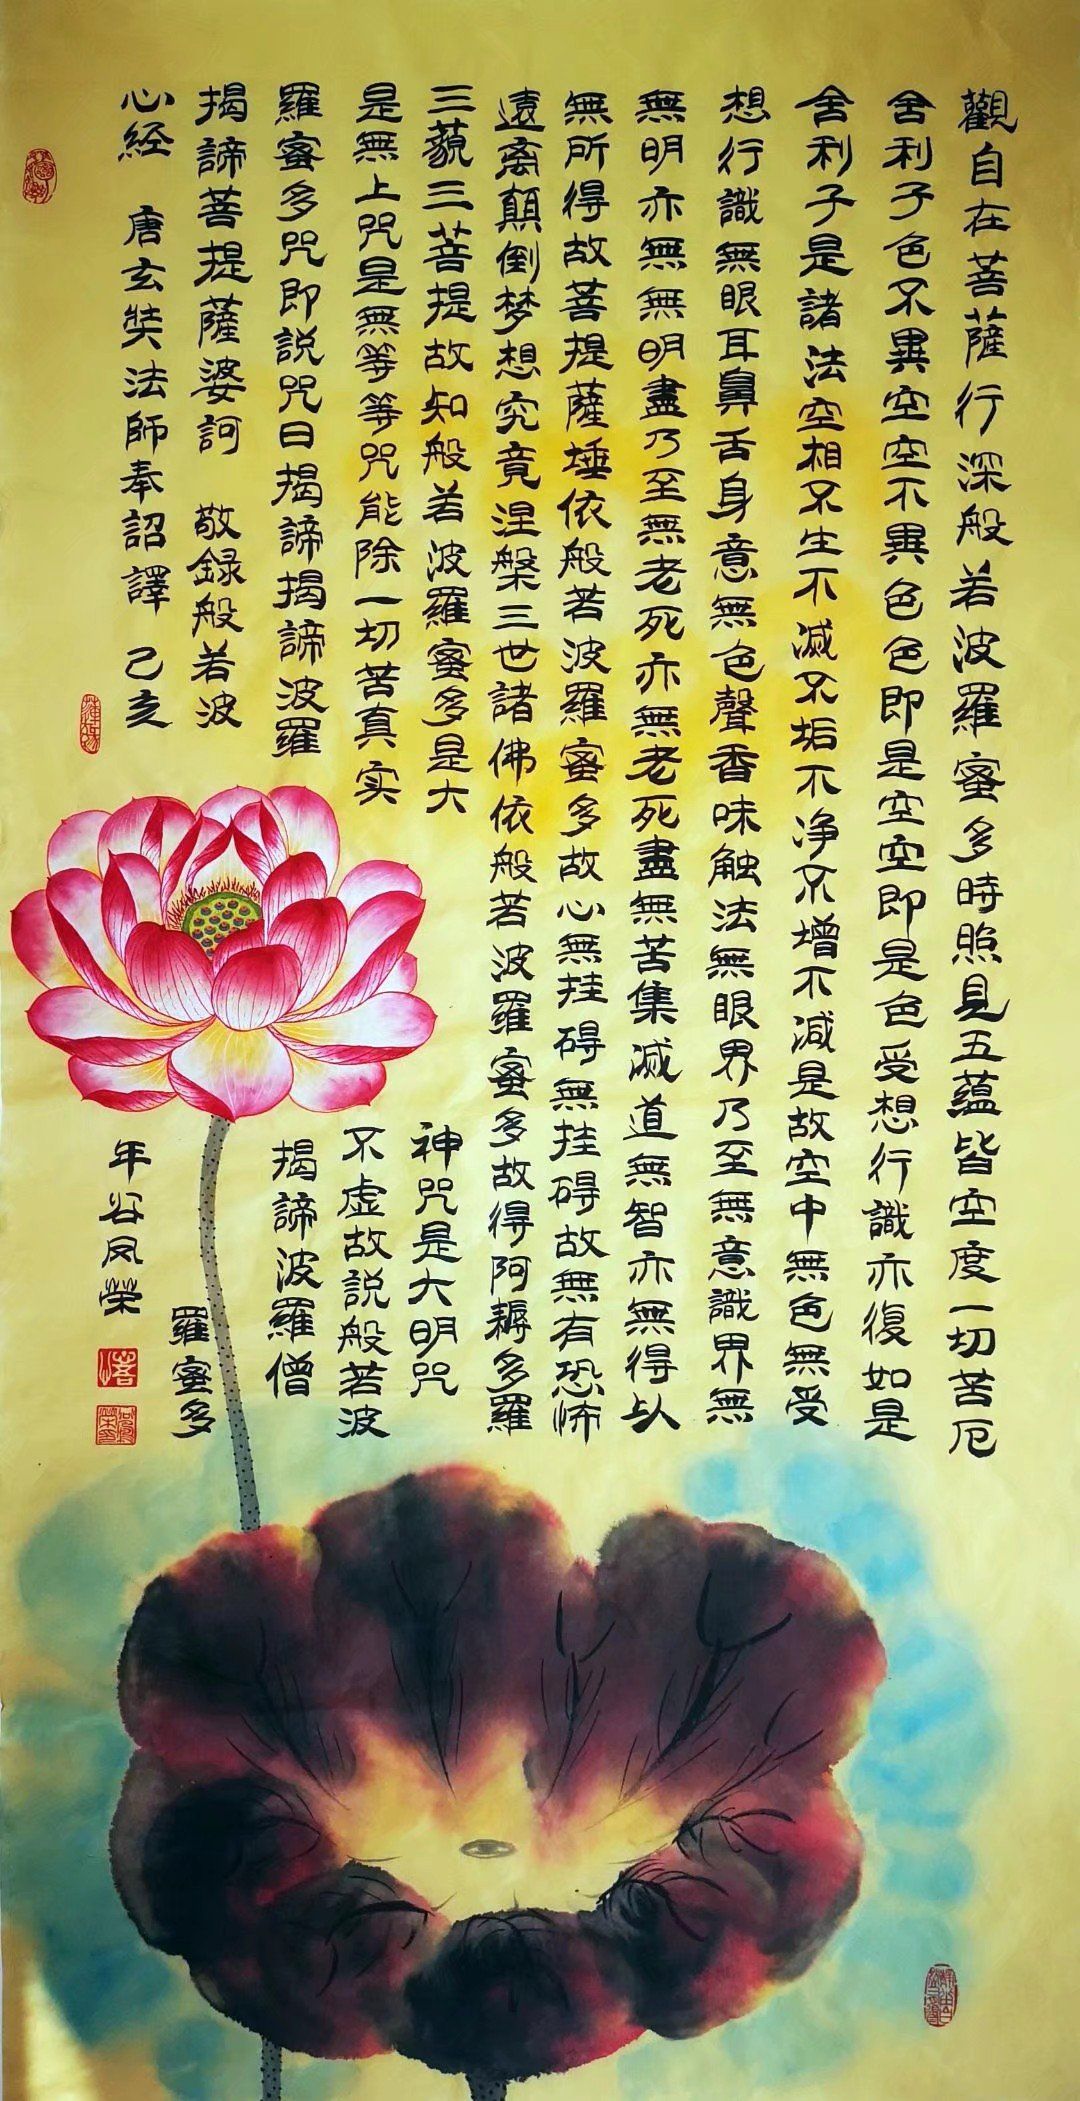 觀自在菩薩行深般若波羅蜜多時照見五蘊皆空度一切苦厄
舍利子色不異空空不異色色即是空空即是色受想行識亦復如是
舍利子是諸法空相不生不滅不垢不净不增不減是故空中無色無受
想行識無眼耳鼻舌身意無色聲香味触法無眼界乃至無意識界無
無明亦無無明盡乃至無老死亦無老死盡無苦集滅道無智亦無得以
無所得故菩提薩埵依般若波羅蜜多故心無挂碍無挂碍故無有恐怖
遠离顛倒梦想究竟涅槃三世諸佛依般若波羅蜜多故得阿耨多羅
三藐三菩提故知般若波羅蜜多是大神咒是大明咒
是無上咒是無等等咒能除一切苦真实不虚故説般若波
羅蜜多咒即説咒曰揭諦揭諦波羅揭諦波羅僧
揭諦菩提薩婆訶 敬録般若波羅蜜多
心経 唐玄奘法師奉詔譯 己亥年谷凤榮